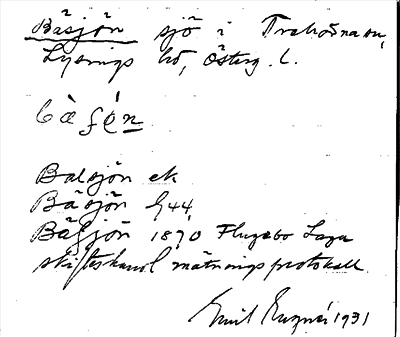 Båsjön sjö i Trehörna sn,
Lysings hd, Österg. l.
bà ʃó̱n
Balsjön ek
Båsjön G44
Båsjön 1890 Flugebo Laga
skifteskarl mätningsprotokoll
Emil 1931